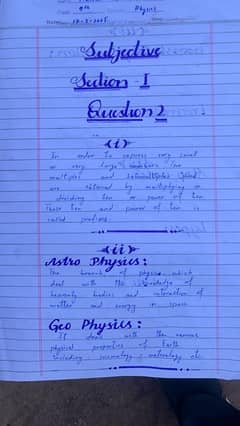 9th Physics
Subjective
Section - I
Question 2
(i)
In order to express very small
or very large numbers the
multiples and
are obtained by multiplying or
dividing ten or power of ten
These ten and power of ten is
called prefixes.
(ii)
Astro Physics:
The branch of physics which
deal with the knowledge of
heavenly bodies and interaction of
matter and energy in space
Geo Physics:
It deals with the various
physical properties of Earth
including seismology, metrology etc.